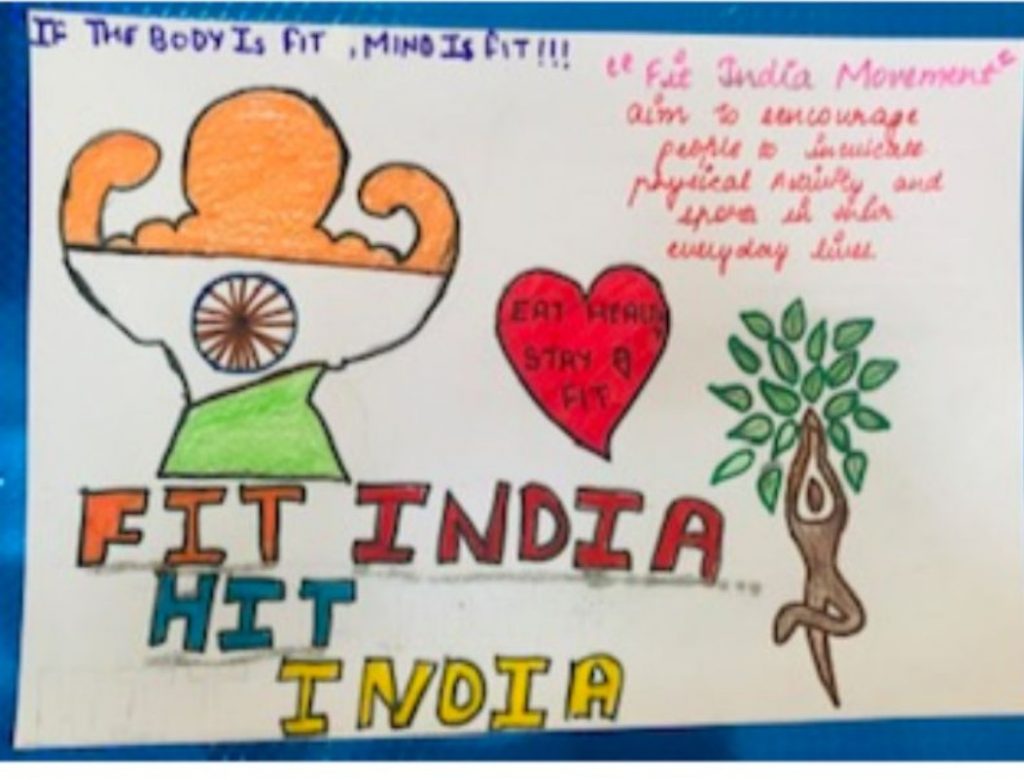 IF THE BODY IS FIT , MIND IS FIT !!!
"Fit India Movement"
aim to eencourage
people to
physical and
in
everyday lives.
EAT
STAY
FIT
FIT INDIA ...
HIT
INDIA